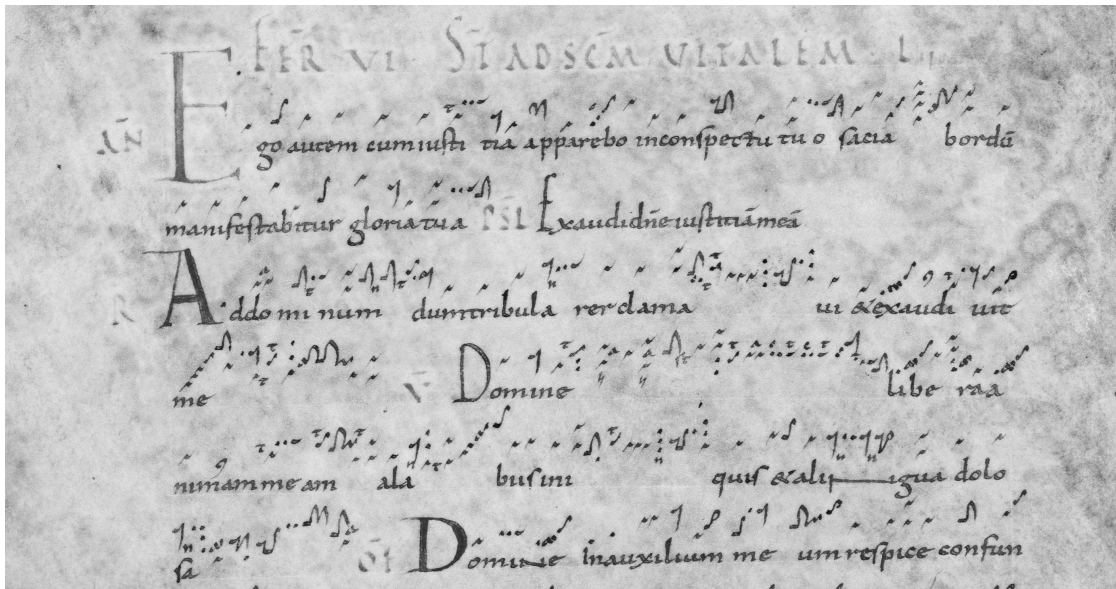 FER VI STAD SCM VITALEM
AÑ Ego autem cum iusti tia apparebo inconspectu tuo sacia bordū
manifestabitur gloria tua PSL Exaudi dn̄e iustitiā meā
R Addominum dum tribula rer clama ui & exaudi uit
me V Domine libe ra a
nimam meam a la bus ini quis & a li gua dolo
sa OF Domine in auxilium me um respice confun